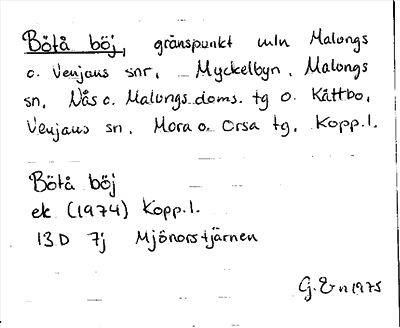 Bötå böj, gränspunkt mln Malungs
o. Venjans snr. Myckelbyn, Malungs
sn, Nås o. Malungs doms. tg o. Kättbo,
Venjans sn. Mora o. Orsa tg, Kopp.l.
Bötå böj
ek (1974) Kopp.l.
13D 7j Mjönorstjärnen
G. En 1975